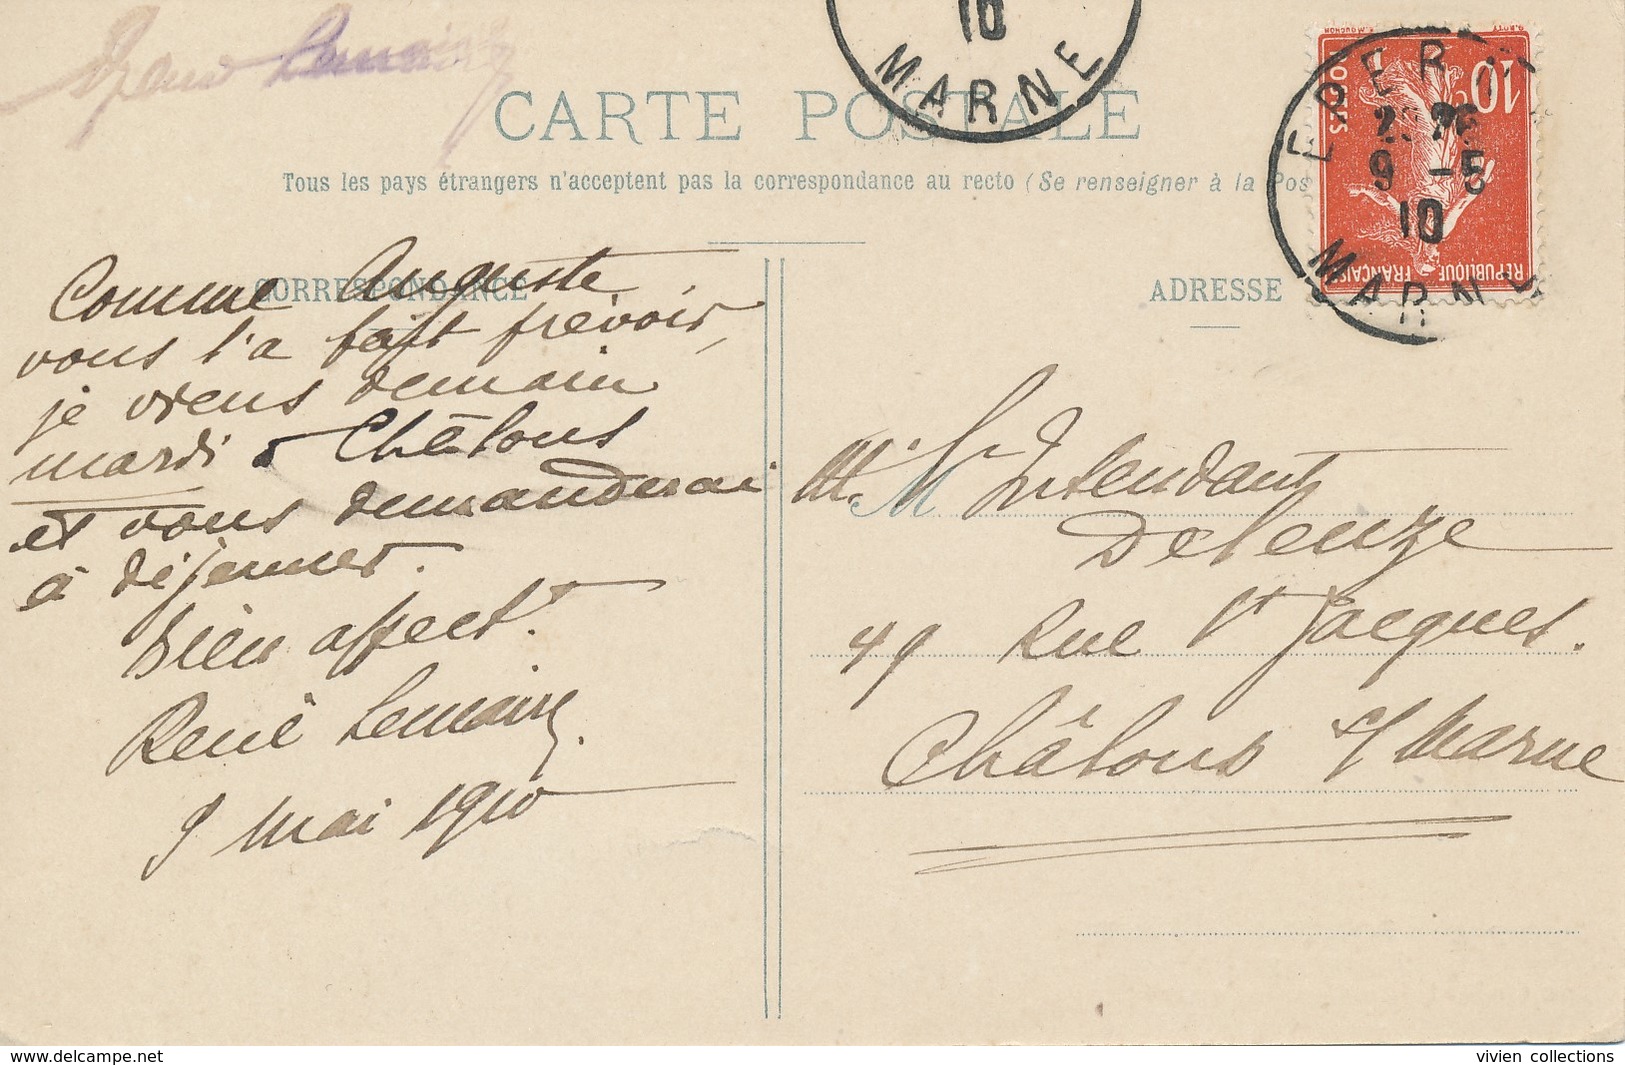 René Lemaire
10
MARNE
CARTE POSTALE
Tous les pays étrangers n'acceptent pas la correspondance au recto (Se renseigner à la Pos
CORRESPONDANCE
ADRESSE
10
POSTES
REPUBLIQUE FRANÇAIS
EPERNAY
9 -5
10
MARNE
Comme Auguste
vous l'a fait prévoir,
je viens demain
mardi à Châlons
et vous demanderai
à déjeuner.
bien affect.
René Lemaire
9 mai 1910
M. M L'Intendant
Deleuze
49 Rue St Jacques.
Châlons s/ Marne
www.delcampe.net
vivien collections